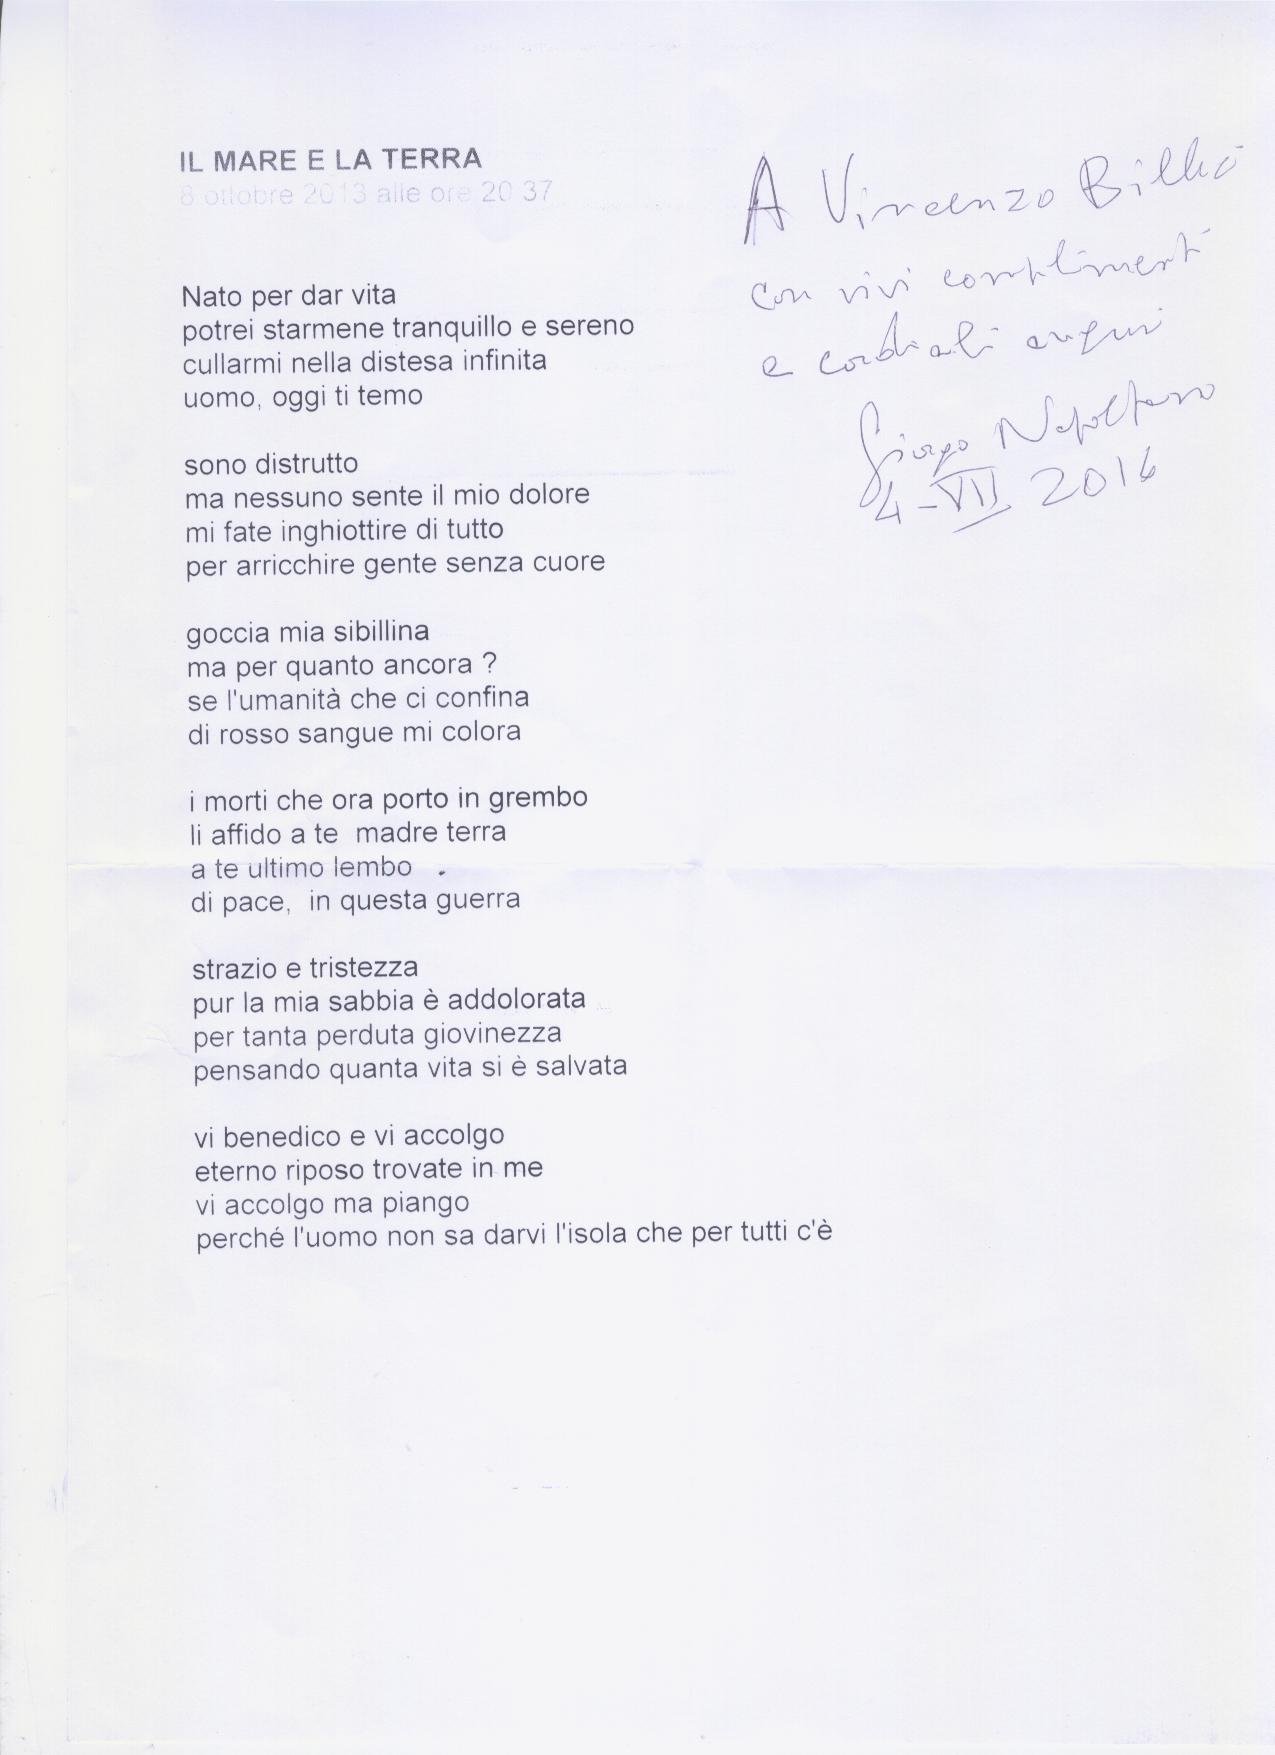 IL MARE E LA TERRA
8 ottobre 2013 alle ore 20:37
A Vincenzo
con vivi complimenti
e cordiali auguri
Giorgio Napolitano
4-VII 2016
Nato per dar vita
potrei starmene tranquillo e sereno
cullarmi nella distesa infinita
uomo, oggi ti temo
sono distrutto
ma nessuno sente il mio dolore
mi fate inghiottire di tutto
per arricchire gente senza cuore
goccia mia sibillina
ma per quanto ancora ?
se l'umanità che ci confina
di rosso sangue mi colora
i morti che ora porto in grembo
li affido a te  madre terra
a te ultimo lembo
di pace,  in questa guerra
strazio e tristezza
pur la mia sabbia è addolorata
per tanta perduta giovinezza
pensando quanta vita si è salvata
vi benedico e vi accolgo
eterno riposo trovate in me
vi accolgo ma piango
perché l'uomo non sa darvi l'isola che per tutti c'è